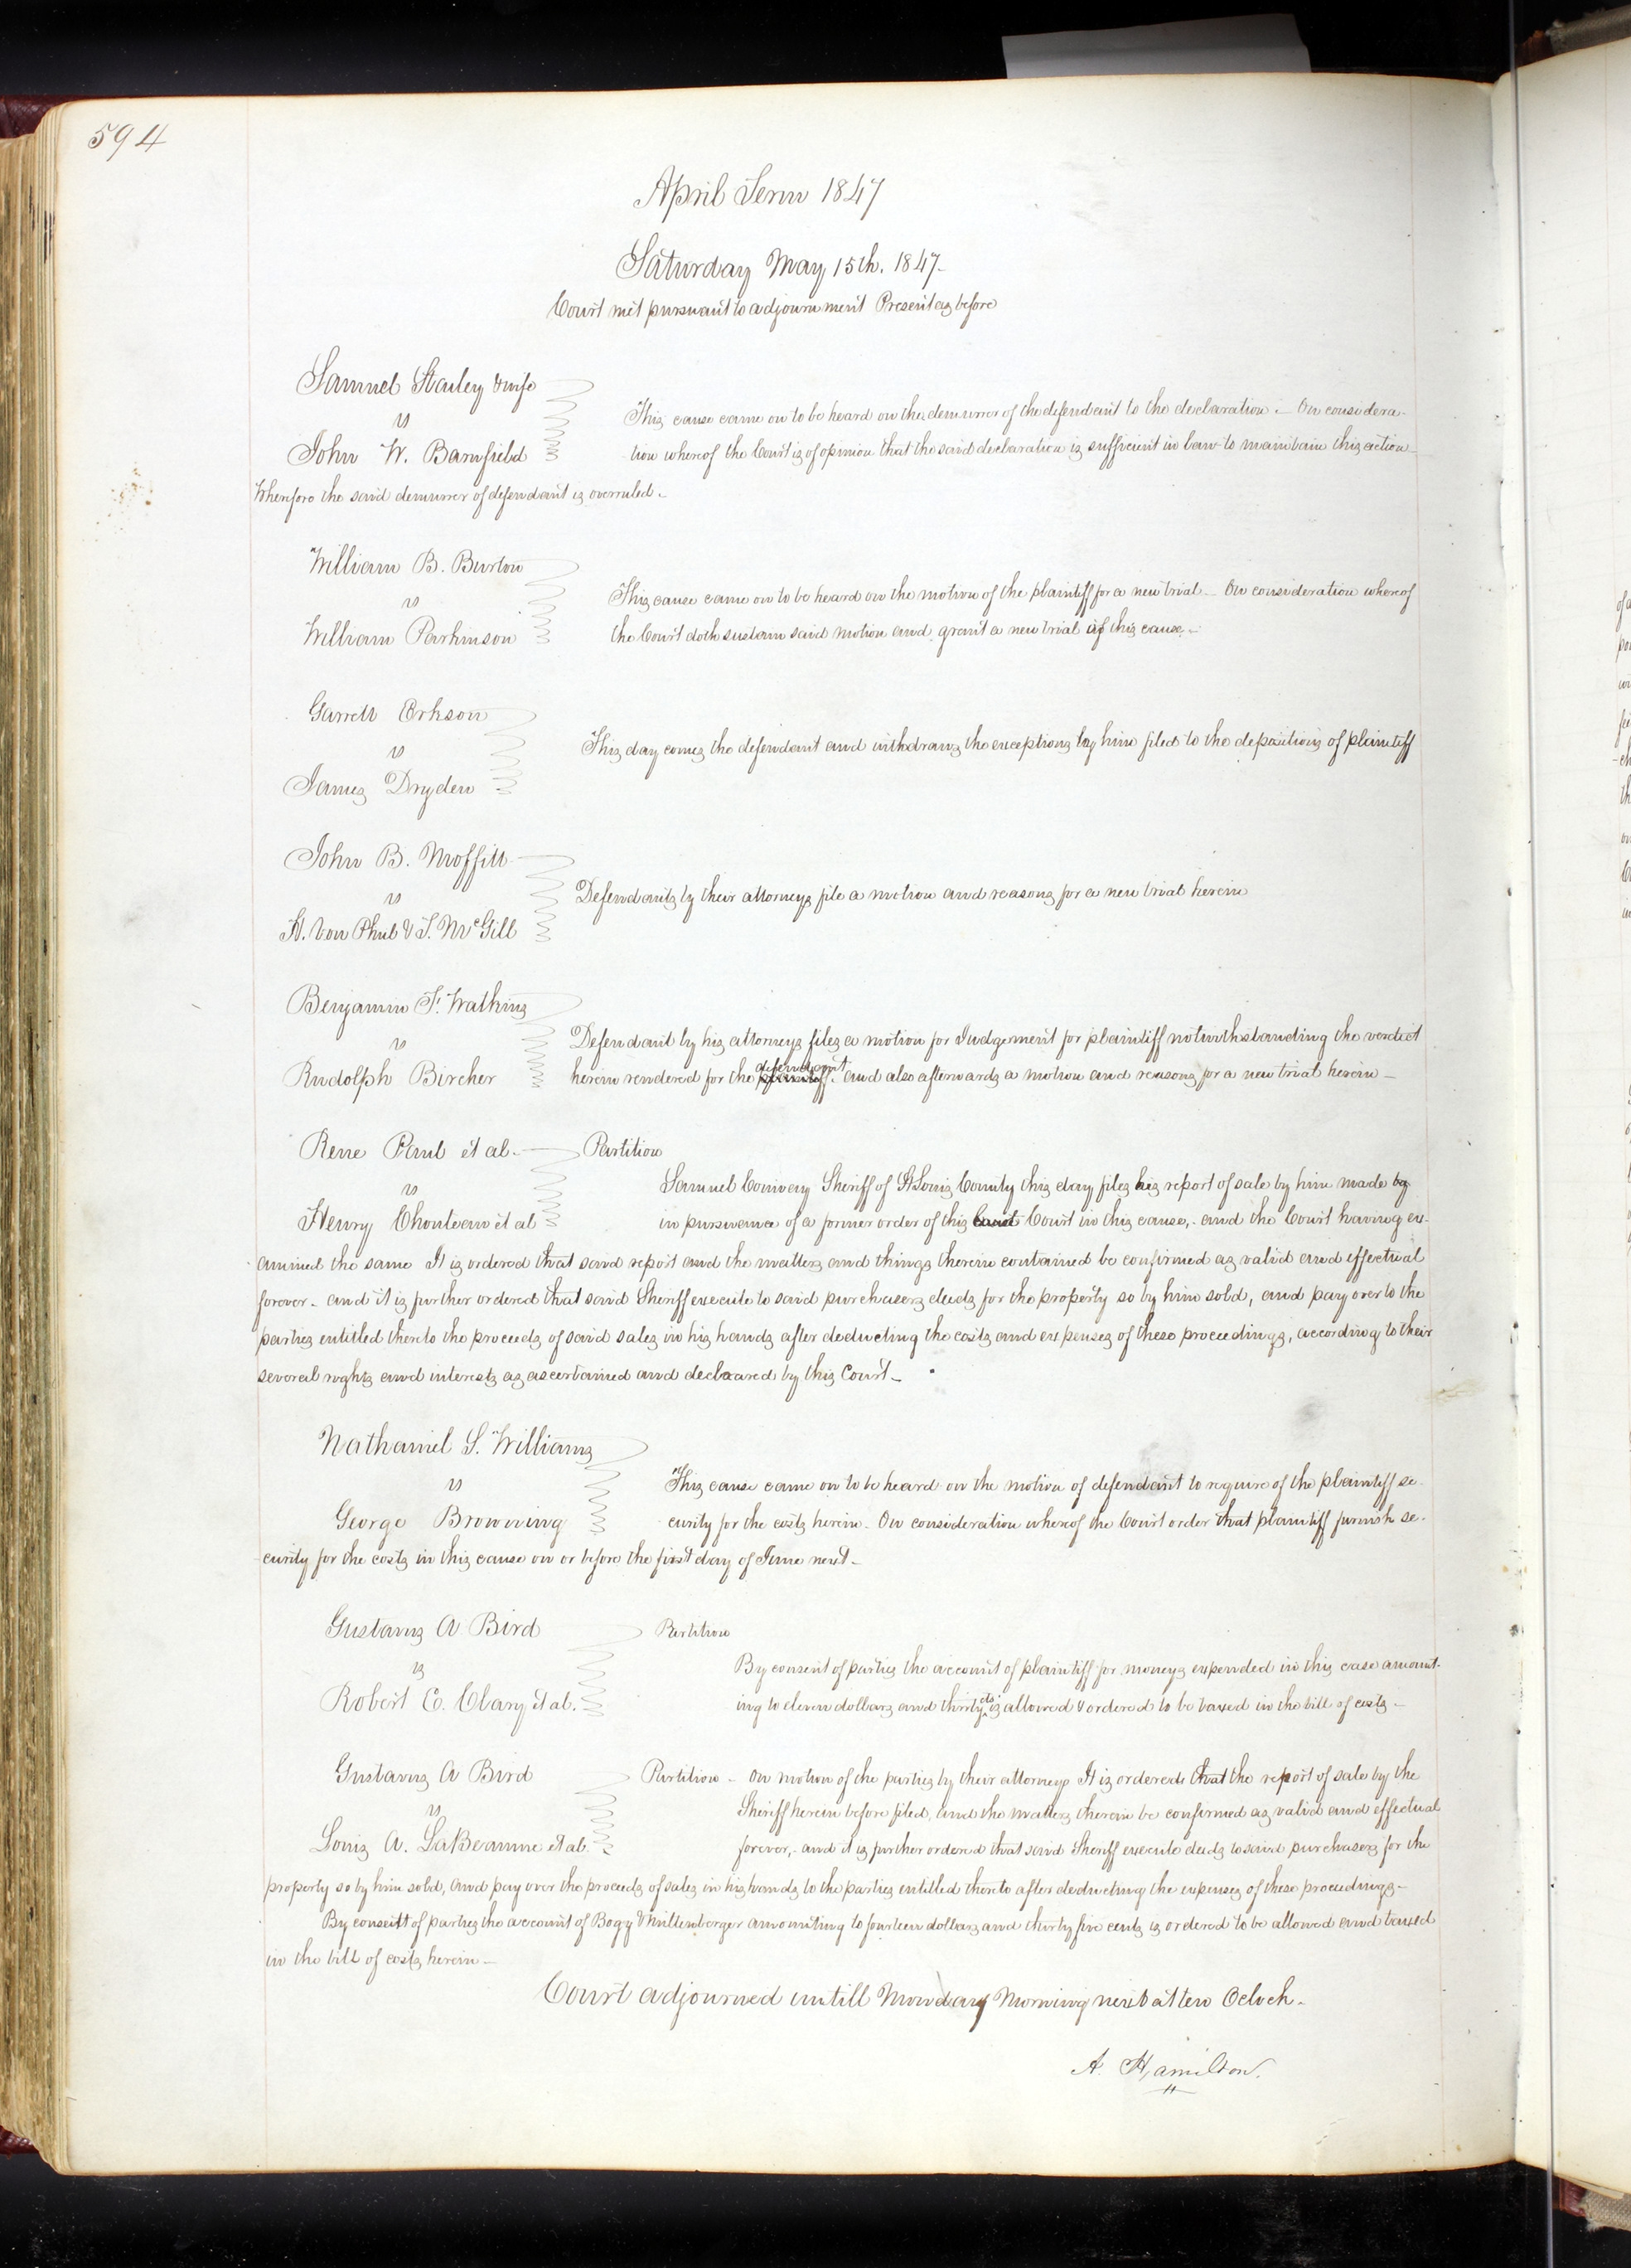 594
April Term 1847
Saturday May 15th. 1847-
Court met pursuant to adjournment Present as before
Samuel Stailey & wife
vs
John W. Barnfield
This cause came on to be heard on the demurrer of the defendant to the declaration - On considera-
tion whereof the Court is of opinion that the said declaration is sufficient in law to maintain this action
Wherefore the said demurrer of defendant is overruled -
William B. Burton
vs
William Parkinson
This cause came on to be heard on the motion of the plaintiff for a new trial - On consideration whereof
the Court doth sustain said motion and grant a new trial of this cause -
Garrett Erkson
vs
James Dryden
This day comes the defendant and withdraws the exceptions by him filed to the depositions of plaintiff
John B. Moffitt
vs
H. Von Phul & T. McGill
Defendants by their attorneys file a motion and reasons for a new trial herein
Benjamin F. Watkins
vs
Rudolph Bircher
Defendant by his attorneys files a motion for Judgement for plaintiff notwithstanding the verdict
herein rendered for the plaintiff defendant. and also afterwards a motion and reasons for a new trial herein -
Rene Paul et al -
vs
Henry Chouteau et al
Partition
Samuel Conway Sheriff of St Louis County this day files his report of sale by him made by
in pursuance of a former order of this Court in this cause, - and the Court having ex-
amined the same It is ordered that said report and the matters and things therein contained be confirmed as valid and effectual
forever - and it is further ordered that said Sheriff execute to said purchasers deeds for the property so by him sold, and pay over to the
parties entitled thereto the proceeds of said sales in his hands after deducting the costs and expenses of these proceedings, according to their
several rights and interests as ascertained and declared by this Court -
Nathaniel S. Williams
vs
George Browning
This cause came on to be heard on the motion of defendant to require of the plaintiff se-
curity for the costs herein - On consideration whereof the Court order that plaintiff furnish se-
curity for the costs in this cause on or before the first day of June next -
Gustavus A Bird
vs
Robert E. Clary et al.
Partition
By consent of parties the account of plaintiff for moneys expended in this case amount-
ing to eleven dollars and thirty cts is allowed & ordered to be taxed in the bill of costs -
Gustavus A Bird
vs
Louis A. LaBeaume et al.
Partition - On motion of the parties by their attorneys It is ordered that the report of sale by the
Sheriff herein before filed, and the matters therein be confirmed as valid and effectual
forever, - and it is further ordered that said Sheriff execute deeds to said purchasers for the
property so by him sold, and pay over the proceeds of sales in his hands to the parties entitled thereto after deducting the expenses of these proceedings -
By consent of parties the account of Bogy & Miltenberger amounting to fourteen dollars and thirty five cents is ordered to be allowed and taxed
in the bill of costs herein -
Court adjourned untill Monday Morning next at ten Oclock -
A. Hamilton.